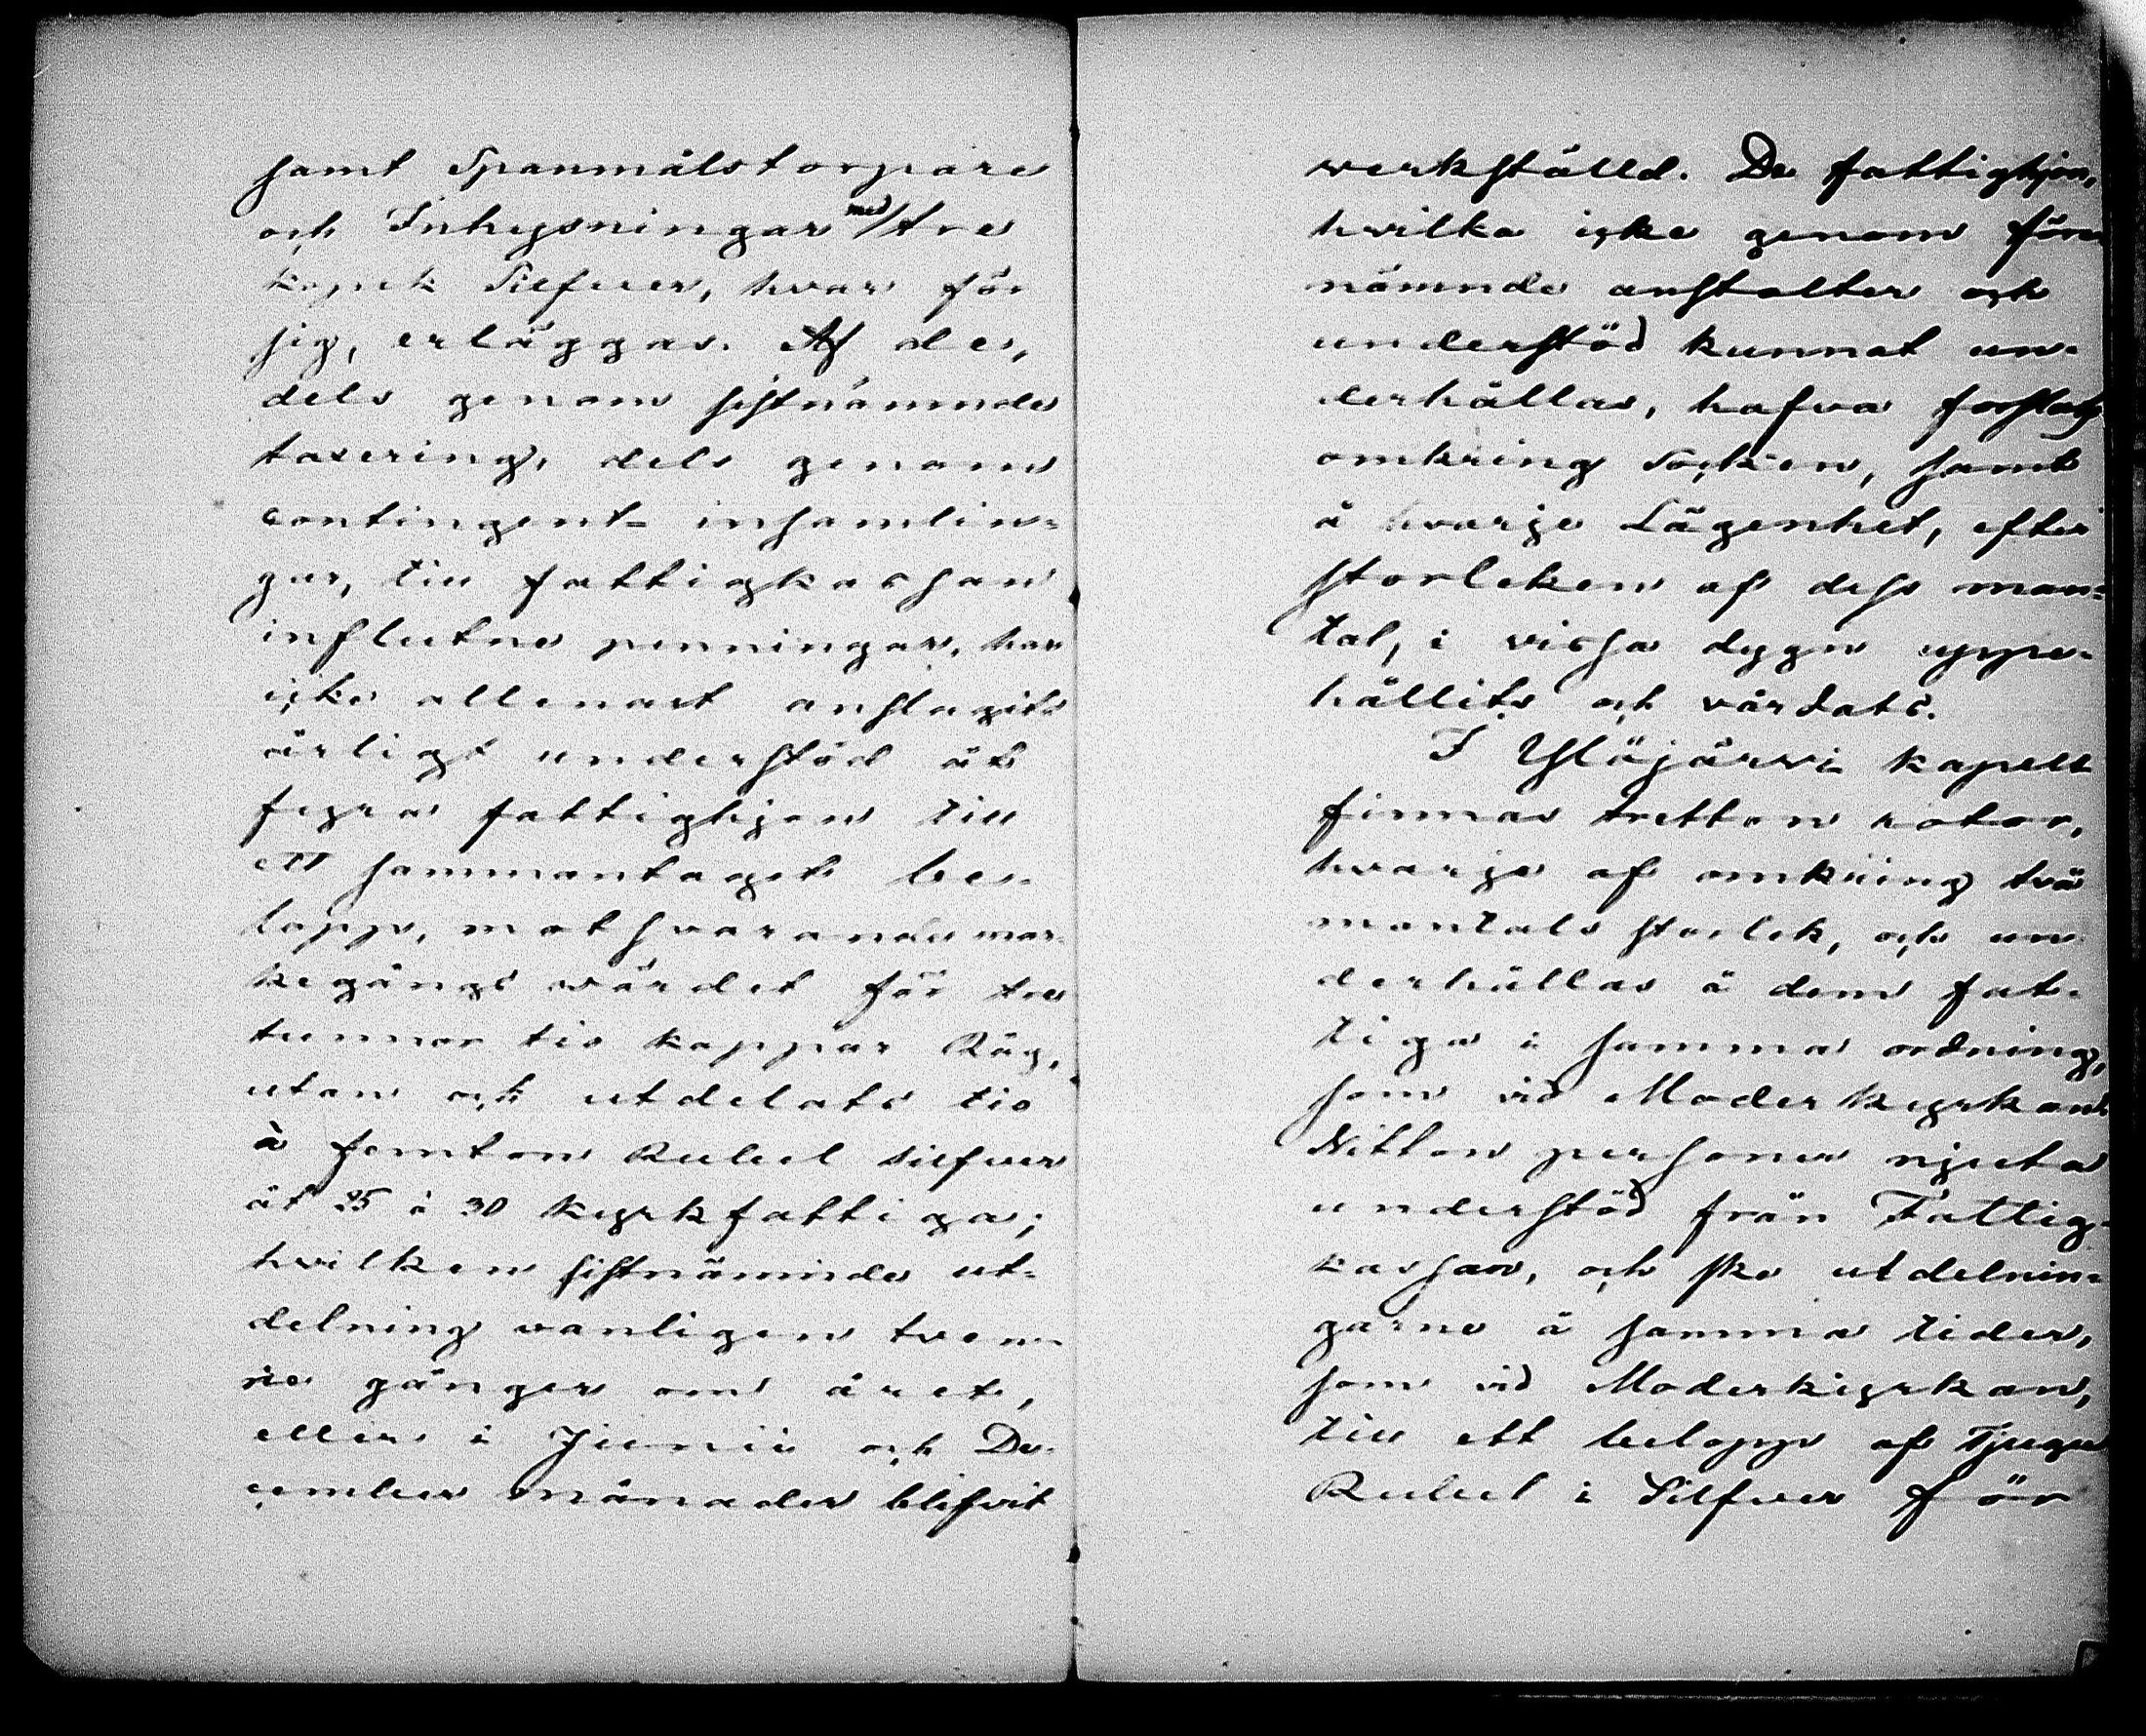 samt Spanmålstorpare
och Inhysningar med tre
kopek Silfver, hvar för
sig, erläggas. Af de,
dels genom sistnämnde
taxering, dels genom
contingent- insamlin-
gar, till fattigkassan
influtne penningar, har
icke allenast anslagits
årligt understöd åt
fyra fattighjon till
ett sammantaget be-
lopp, motsvarande mar-
kegångs wärdet för tre
tunnor tio kappar Råg,
utan och utdelats tio
à femton Rubel silfver
åt 25 à 30 kyrkfattiga;
hvilken sistnämnde ut-
delning vanligen tven-
ne gånger om året,
eller i Junii och De-
cember månader blifvit
werkställd. De fattighjon,
hvilka icke genom före-
nämnde anstalter och
understöd kunnat un-
derhållas, hafva forslats
omkring Socken, samt
å hvarje Lägenhet, efter
storleken af dess man-
tal, i vissa dygn uppe-
hållits och vårdats.
I Ylöjärvi kapell
finnas tretton rotor,
hvarje af omkring två
mantals storlek, och un-
derhållas å dem fat-
tiga i samma ordning,
som vid Moderkyrkan.
Nitton personer njuta
understöd från Fattig-
kassan, och ske utdelnin-
garne å samma tider,
som vid Moderkyrkan,
till ett belopp af Tjugu
Rubel i Silfver för